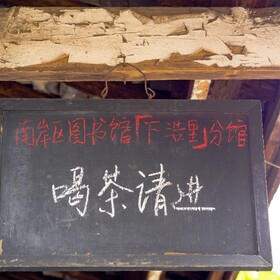 南岸区图书馆「下浩里」分馆
喝茶请进